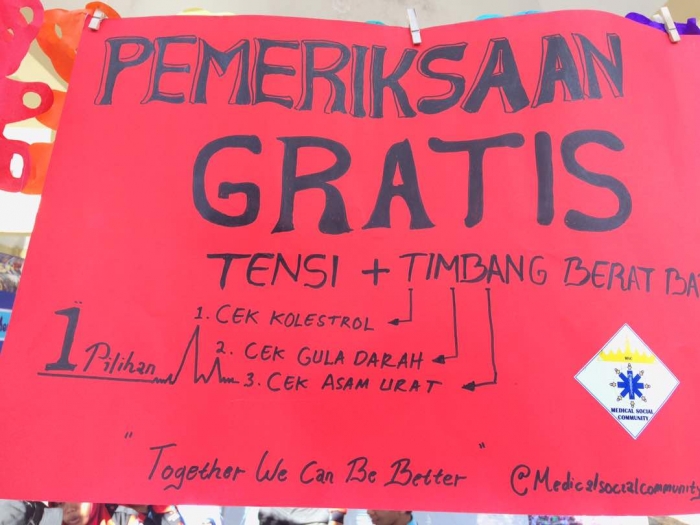 PEMERIKSAAN
GRATIS
TENSI + TIMBANG BERAT BA
1 Pilihan
1. CEK KOLESTROL
2. CEK GULA DARAH
3. CEK ASAM URAT
MEDICAL SOCIAL
COMMUNITY
" Together We Can Be Better "
@Medicalsocialcommunity